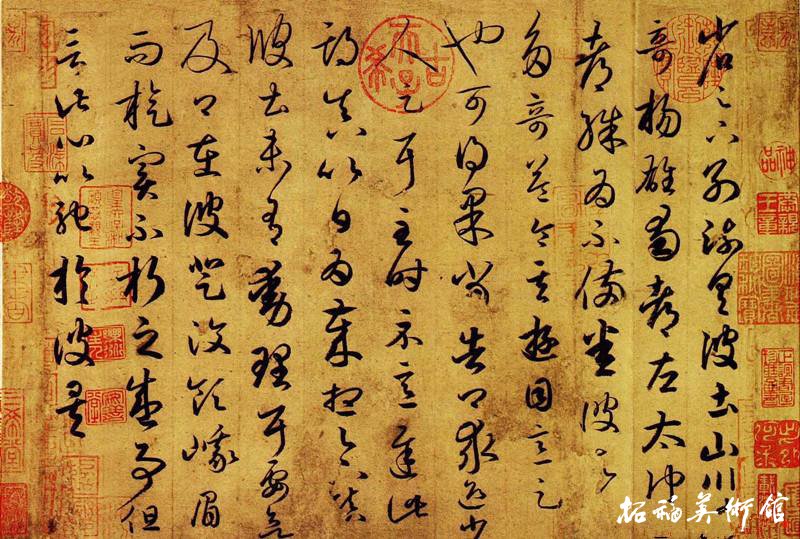 省足下別疏具彼土山川諸
奇揚雄蜀都左太沖三
都殊為不備悉彼故為
多奇益令其遊目意足
也可得果當告卿求迎少
人足耳至時示意遲此
期真以日為歲想足下鎮
彼土未有動理耳要欲
及卿在彼登汶領峨眉
而旋實不朽之盛事但
言此心以馳於彼矣
古希天子
神品
拓福美術館